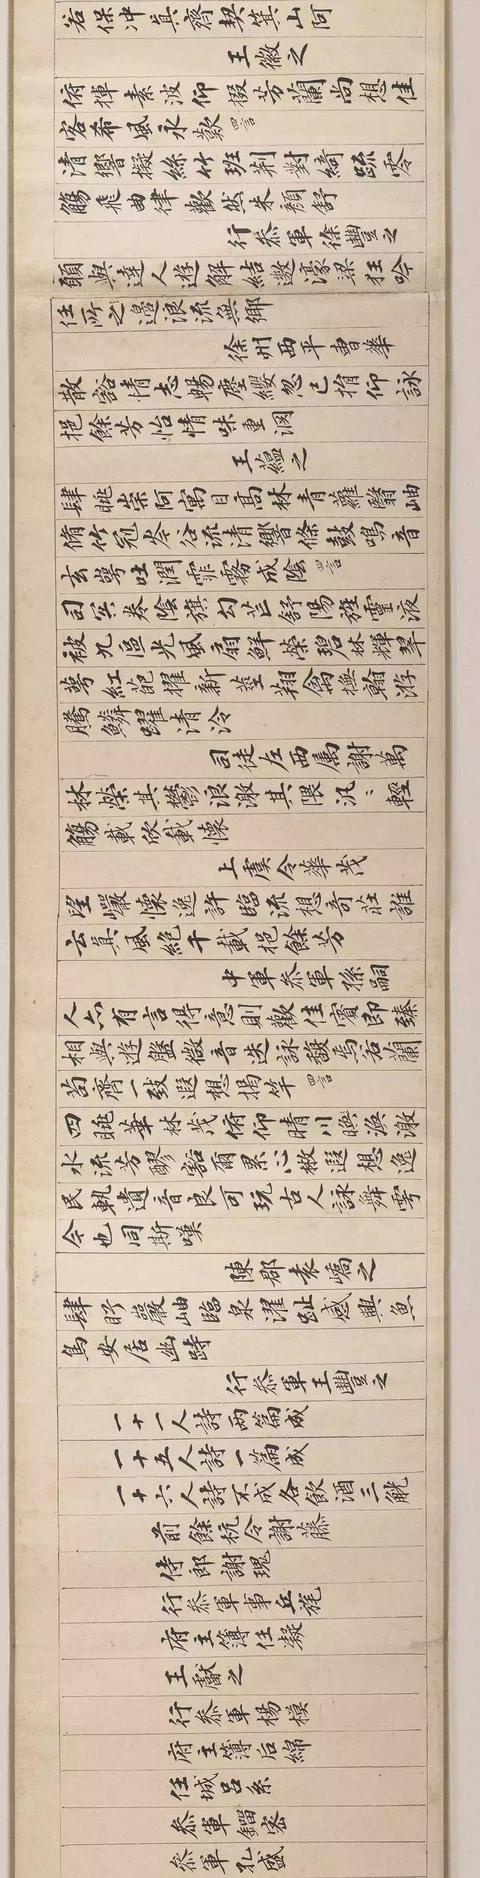 若保沖真齊契箕山阿
王徽之
俯揮素波仰掇芳蘭尚想佳
客希風永歎四言
清響擬絲竹班荊對綺疏零
觴飛曲津歡然朱顏舒
行叅軍徐豐之
願與達人遊解結遨濠梁狂吟
任所之浪流無鄉
徐州西平曹華
散豁情志暢塵纓忽已捐仰詠
挹餘芳怡情味重淵
王蘊之
肆眺崇阿寓目高林青蘿翳岫
脩竹冠岑谷流清響條鼓鳴音
玄崿吐潤霏霧成陰四言
司冥卷陰旗勾芒舒陽旌靈液
被九區光風扇鮮榮碧林輝翠
萼紅葩擢新莖翔禽撫翰游
騰鱗躍清泠
司徒左西属謝萬
林榮其鬱浪激其隈汎〻輕
觴載欣載懷
上虞令華茂
望巖懷逸許臨流想奇莊誰
云真風絕千載挹餘芳
中軍叅軍孫嗣
人亦有言得意則歡佳賓即臻
相與遊盤微音迭詠馥焉若蘭
苗齊一致遐想揭竿四言
四眺華林茂俯仰晴川渙激
水流芳醪豁爾累心散遐想逸
民軌遺音良可玩古人詠舞雩
今也同斯嘆
陳郡袁嶠之
肆眄巖岫臨泉濯趾感興魚
鳥安居幽跱
行叅軍王豐之
一十一人詩兩篇成
一十五人詩一篇成
一十六人詩不成各飲酒三觥
前餘杭令謝藤
侍郎謝瑰
行叅軍事丘旄
府主簿任凝
王獻之
行叅軍楊模
府主簿后綿
任城呂系
叅軍劉密
叅軍孔盛